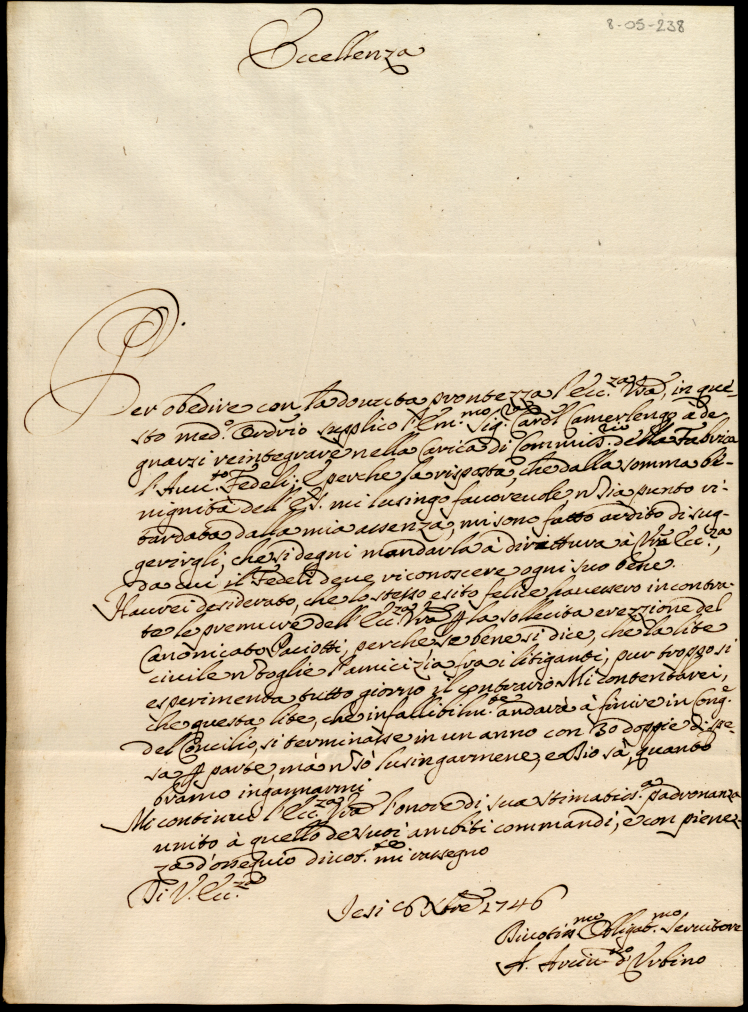 8-05-238
Eccellenza
Per obedire con la dovuta prontezza l'Ecc.za Vrã, in que-
sto med.º Ordrio supplico l'Em.mo Sig.r Card.l Camerlengo à de
gnarsi reintegrare nella Carica di Commiss.rio della Fabrica
l'Avv.to Fedeli; E perche la risposta, che dalla somma be-
nignità dell'E.S. mi lusingo favorevole ñ sia punto ri-
tardata dalla mia assenza, mi sono fatto ardito di sug-
gerirgli, che si degni mandarla à dirittura à Vrã Ecc.za,
da cui il Fedeli deve riconoscere ogni suo bene.
Haurei desiderato, che lo stesso esito felice havessero incontra-
te le premure dell'Ecc.za Vrã p la sollecita erezzione del
Canonicato Paciotti, perche se bene si dice, che la lite
civile ñ toglie l'amicizia fra i litiganti, pur troppo si
esperimenta tutto giorno il contrario. Mi contentarei,
che questa lite, che infallibilm.te andarà à finire in Cong.e
del Concilio, si terminasse in un anno con 30 doppie di spe-
sa p parte, mà ñ sò lusingarmene, e Dio sà, quanto
bramo ingannarmi
Mi continui l'Ecc.za Vrã l'onore di sua stimatiss.a padronanza
unito à quello de suoi ambiti commandi, e con pienez-
za d'ossequio divot.mo mi rassegno
Di V. Ecc.za
Jesi 6 Xbre 1746
Divotiss.mo Obligat.mo Servitore
A. Arciv.vo d'Urbino